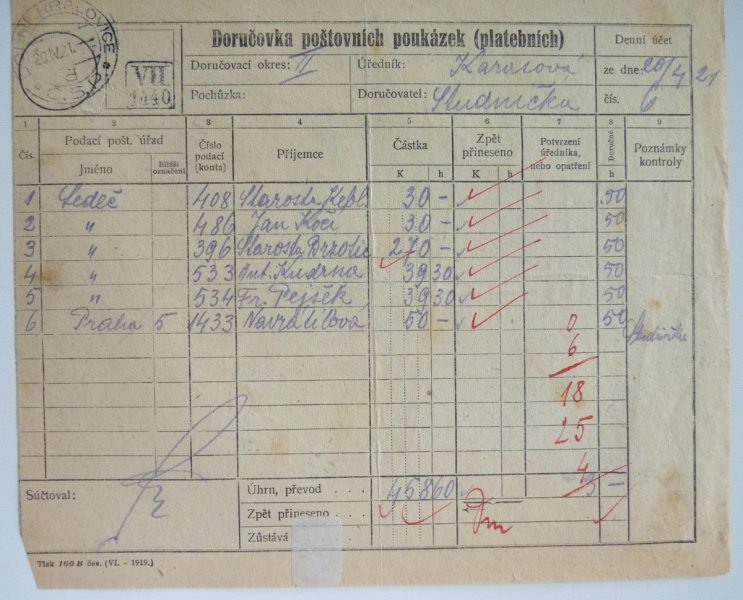 DOLNÍ KRALOVICE
20.IV.21.
Č.S.P.
VII
1440
Doručovka poštovních poukázek (platebních)
Denní účet
Doručovací okres: II
Úředník: Karasová
ze dne: 20/4 21
Pochůzka:
Doručovatel: Studnička
čís. 6
1 2 3 4 5 6 7 8 9
Čís. Podací pošt. úřad Číslo podací (konta) Příjemce Částka Zpět přineseno Potvrzení úředníka, nebo opatření Doručné Poznámky kontroly
Jméno Bližší označení K h K h h
1 Ledeč 408 Starosta 30 - 50
2 " 486 Jan Kočí 30 - 50
3 " 396 Starosta 270 - 50
4 " 533 Ant. Kudrna 39 30 50
5 " 534 Fr. Pejšek 39 30 50
6 Praha 5 1433 Navrátilova 50 - 50
Studnička
0
6
18
25
4
3 -
Súčtoval:
Úhrn, převod . . . 458 60
Zpět přineseno . . .
Zůstává . . .
Tisk 160 B čsv. (VI. - 1919.)